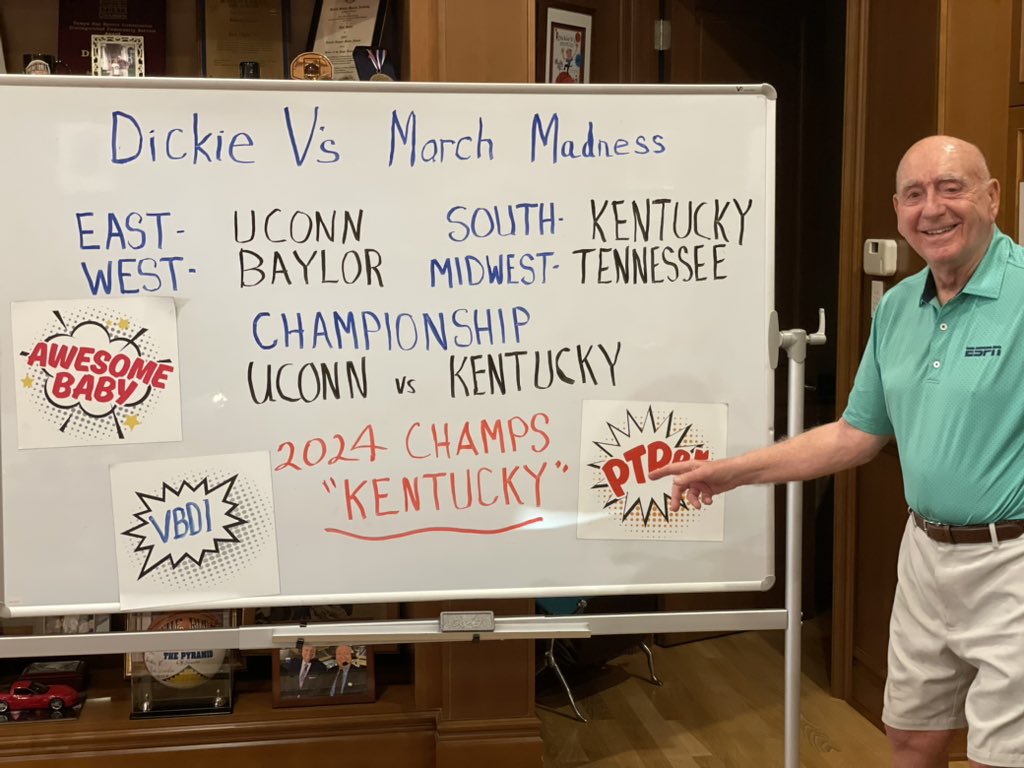 Dickie V's March Madness
EAST- UCONN SOUTH- KENTUCKY
WEST- BAYLOR MIDWEST- TENNESSEE
AWESOME
BABY
CHAMPIONSHIP
UCONN vs KENTUCKY
2024 CHAMPS
"KENTUCKY"
VBDI
ESPN
THE PYRAMID